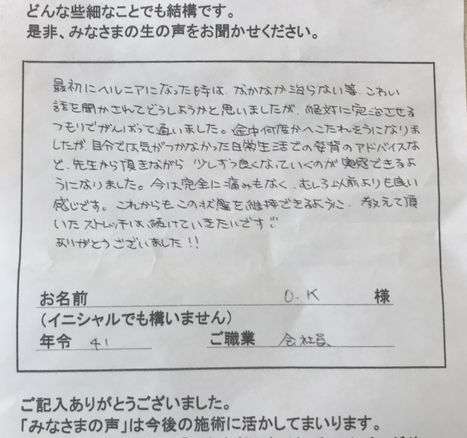 どんな些細なことでも結構です。
是非、みなさまの生の声をお聞かせください。
最初にヘルニアになった時は、なかなか治らない等、こわい
話を聞かされてどうしようかと思いましたが、絶対に完治させる
つもりでがんばって通いました。途中何度かへこたれそうになりまし
たが、自分では気がつかなかった日常生活での発育のアドバイスな
ど、先生から頂きながら 少しずつ良くなっていくのが実感できるよ
うになりました。今は完全に痛みもなく、むしろ以前よりも良い
感じです。これからもこの状態を維持できるように、教えて頂
いたストレッチは続けていきたいです!!
ありがとうございました!!
お名前 O.K 様
(イニシャルでも構いません)
年令 41 ご職業 会社員
ご記入ありがとうございました。
「みなさまの声」は今後の施術に活かしてまいります。